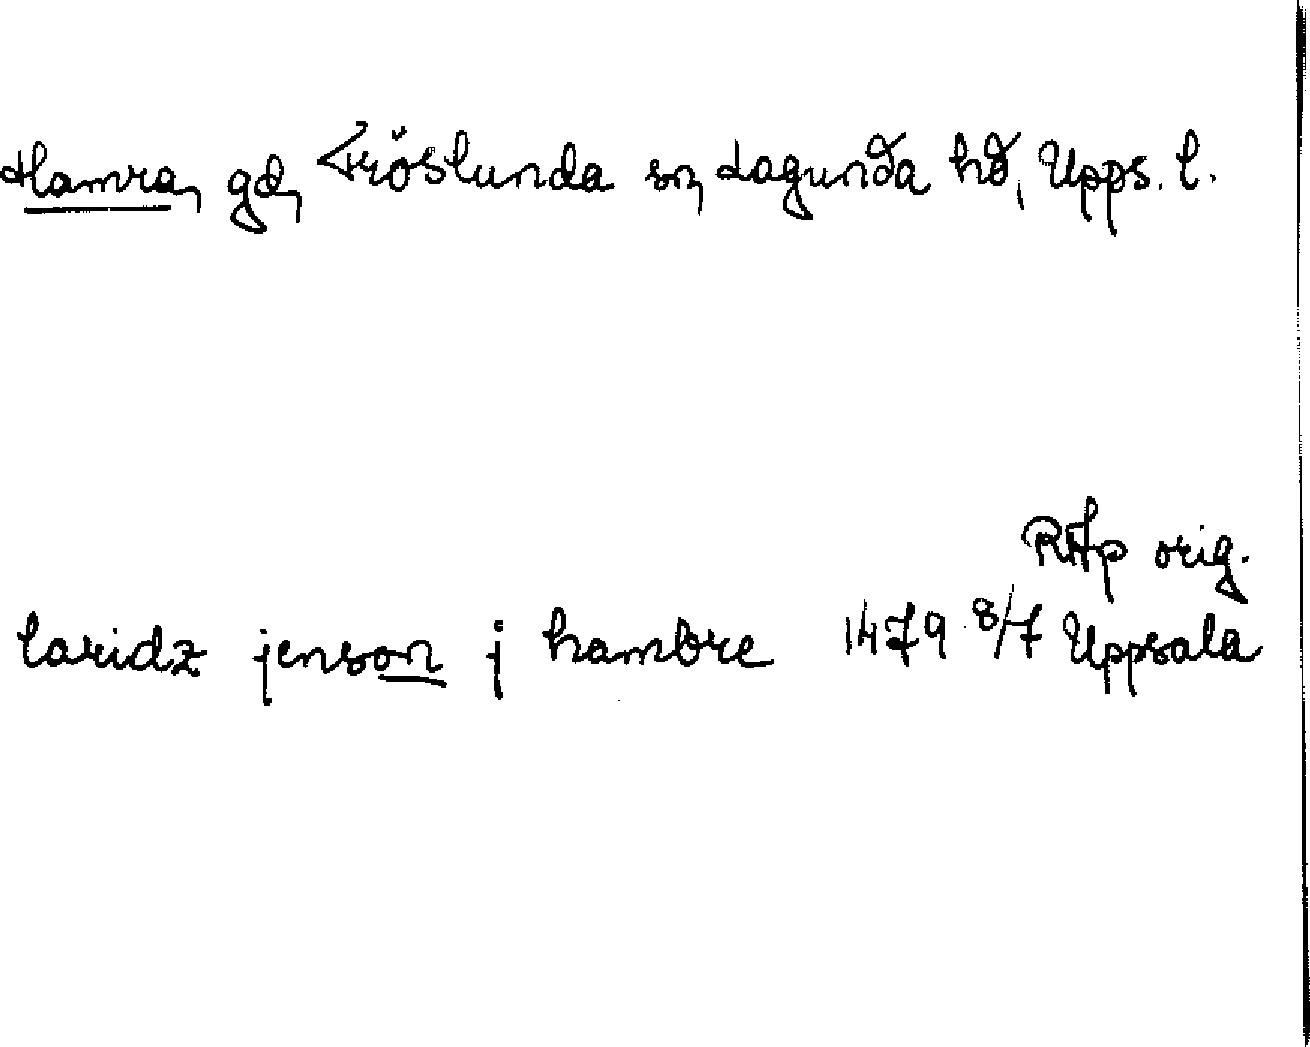 Hamra, gd, Fröslunda sn, Lagunda hd, Upps. l.
RAp orig.
laridz jenson j hambre 1479 8/7 Uppsala